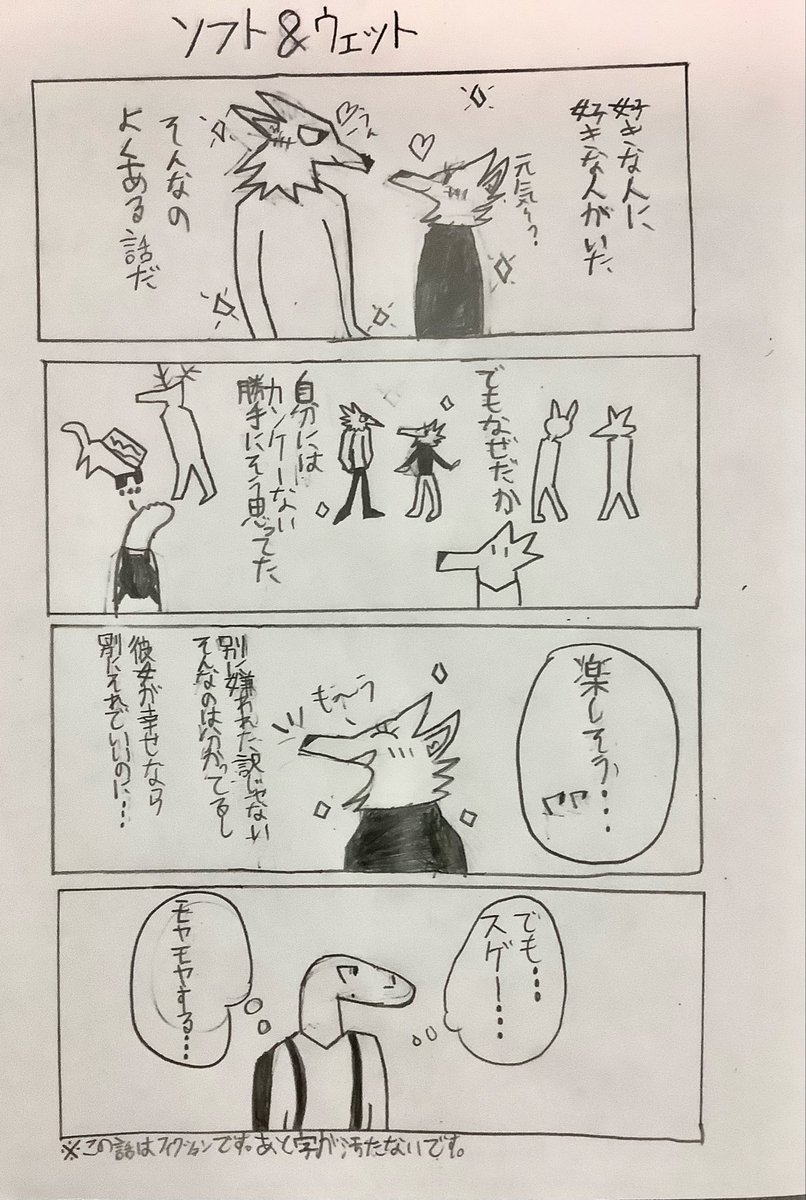 ソフト&ウェット
好きな人に
好きな人がいた
元気〜?
そんなの
よくある話だ
でもなぜだか
自分には
カンケーない
勝手にそう思ってた
楽しそう…
もぅ〜
別に嫌われた訳じゃない
そんなのは分かってるし
彼女が幸せなら
別にそれでいいのに…
でも…
スゲー…
モヤモヤする…
※この話はフィクションです。あと字が汚たないです。